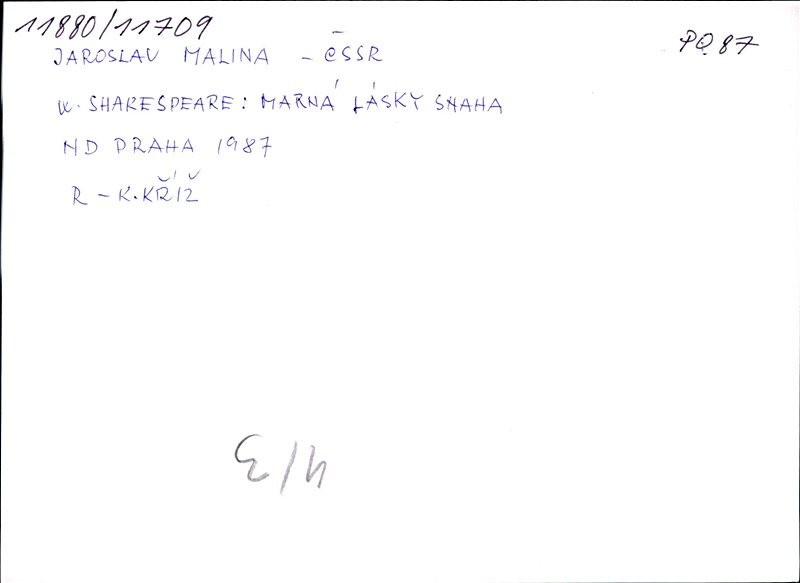 11880/11709
PQ 87
JAROSLAV MALINA – ČSSR
W. SHAKESPEARE: MARNÁ LÁSKY SNAHA
ND PRAHA 1987
R – K. KŘÍŽ
4/3